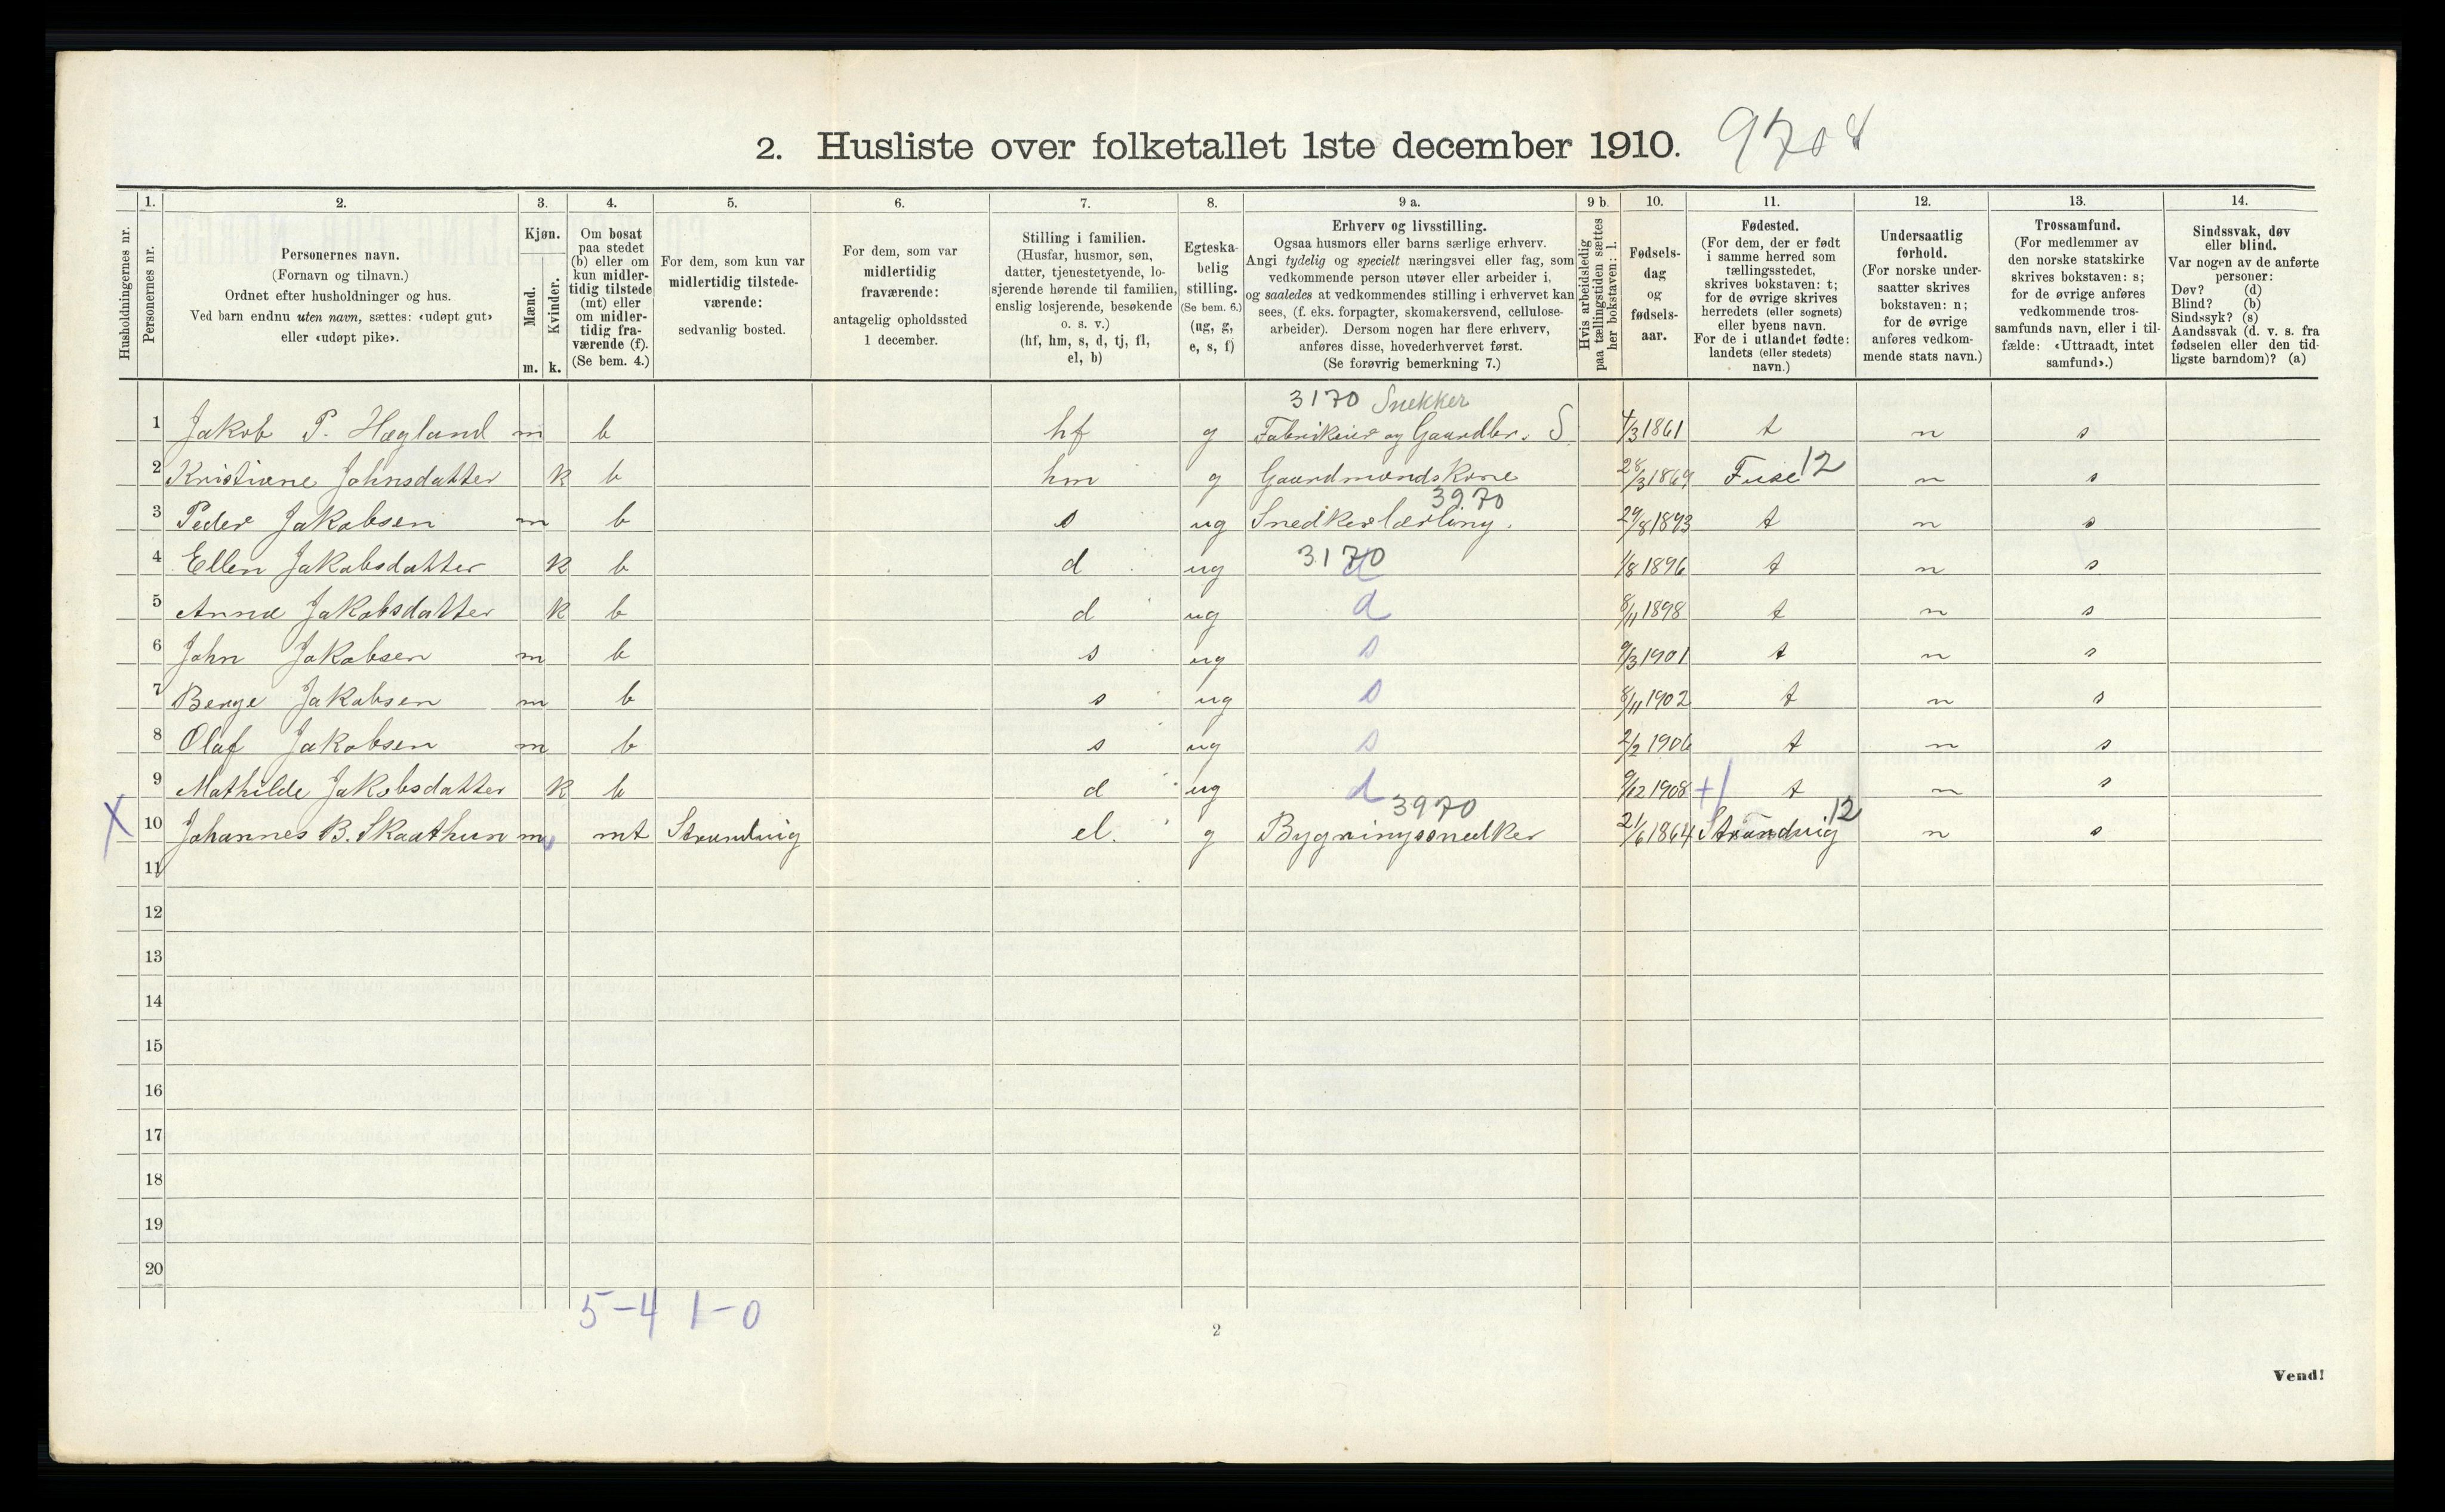 2. Husliste over folketallet 1ste december 1910. 9708
Husholdningernes nr.
1. Personernes nr.
2. Personernes navn. (Fornavn og tilnavn.) Ordnet efter husholdninger og hus. Ved barn endnu uten navn, sættes: «udøpt gut» eller «udøpt pike».
3. Kjøn. Mænd. m. Kvinder. k.
4. Om bosat paa stedet (b) eller om kun midlertidig tilstede (mt) eller om midlertidig fraværende (f). (Se bem. 4.)
5. For dem, som kun var midlertidig tilstedeværende: sedvanlig bosted.
6. For dem, som var midlertidig fraværende: antagelig opholdssted 1 december.
7. Stilling i familien. (Husfar, husmor, søn, datter, tjenestetyende, losjerende hørende til familien, enslig losjerende, besøkende o. s. v.) (hf, hm, s, d, tj, fl, el, b)
8. Egteskabelig stilling. (Se bem. 6.) (ug, g, e, s, f)
9 a. Erhverv og livsstilling. Ogsaa husmors eller barns særlige erhverv. Angi tydelig og specielt næringsvei eller fag, som vedkommende person utøver eller arbeider i, og saaledes at vedkommendes stilling i erhvervet kan sees, (f. eks. forpagter, skomakersvend, cellulosearbeider). Dersom nogen har flere erhverv, anføres disse, hovederhvervet først. (Se forøvrig bemerkning 7.)
9 b. Hvis arbeidsledig paa tællingstiden sættes her bokstaven: l.
10. Fødselsdag og fødselsaar.
11. Fødested. (For dem, der er født i samme herred som tællingsstedet, skrives bokstaven: t; for de øvrige skrives herredets (eller sognets) eller byens navn. For de i utlandet fødte: landets (eller stedets) navn.)
12. Undersaatlig forhold. (For norske undersaatter skrives bokstaven: n; for de øvrige anføres vedkommende stats navn.)
13. Trossamfund. (For medlemmer av den norske statskirke skrives bokstaven: s; for de øvrige anføres vedkommende trossamfunds navn, eller i tilfælde: «Uttraadt, intet samfund».)
14. Sindssvak, døv eller blind. Var nogen av de anførte personer: Døv? (d) Blind? (b) Sindssyk? (s) Aandssvak (d. v. s. fra fødselen eller den tidligste barndom)? (a)
3170 Snekker
1 Jakob P. Hægland m b hf g Fabrikeier og Gaardbr. S 4/3 1861 t n s
2 Kristiane Johnsdatter k b hm g Gaardmandskone 28/3 1869 Fuse 12 n s
3970
3 Peder Jakobsen m b s ug Snedkerlærling. 29/8 1893 t n s
4 Ellen Jakobsdatter k b d ug 3170 d 1/8 1896 t n s
5 Anna Jakobsdatter k b d ug d 8/11 1898 t n s
6 John Jakobsen m b s ug s 9/3 1901 t n s
7 Berge Jakobsen m b s ug s 8/11 1902 t n s
8 Olaf Jakobsen m b s ug s 2/2 1906 t n s
9 Mathilde Jakobsdatter k b d ug d 9/12 1908 t n s
3970 12
X 10 Johannes B. Skaathun m mt Strandvig el. g Bygningssnedker 21/6 1864 Strandvig n s
11
12
13
14
15
16
17
18
19
20
5-4 1-0
2
Vend!